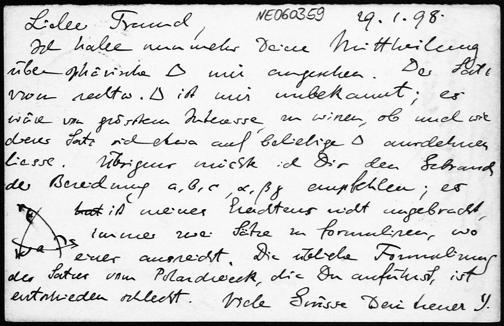 Lieber Freund, NE060359 29.1.98.
Ich habe nunmehr Deine Mittheilung
über sphärische Δ mir angesehen. Der Satz
vom rechtw. Δ ist mir unbekannt; es
wäre von grösstem Interesse, zu wissen, ob und wie
dieser Satz sich etwa auf beliebige Δ ausdehnen
liesse. Übrigens möchte ich Dir den Gebrauch
der Bezeichnung a, b, c, α, β, γ empfehlen; es
ist meines Erachtens nicht angebracht,
immer zwei Sätze zu formuliren, wo
einer ausreicht. Die übliche Formulirung
des Satzes vom Polardreieck, die Du anführst, ist
entschieden schlecht. Viele Grüsse Dein treuer